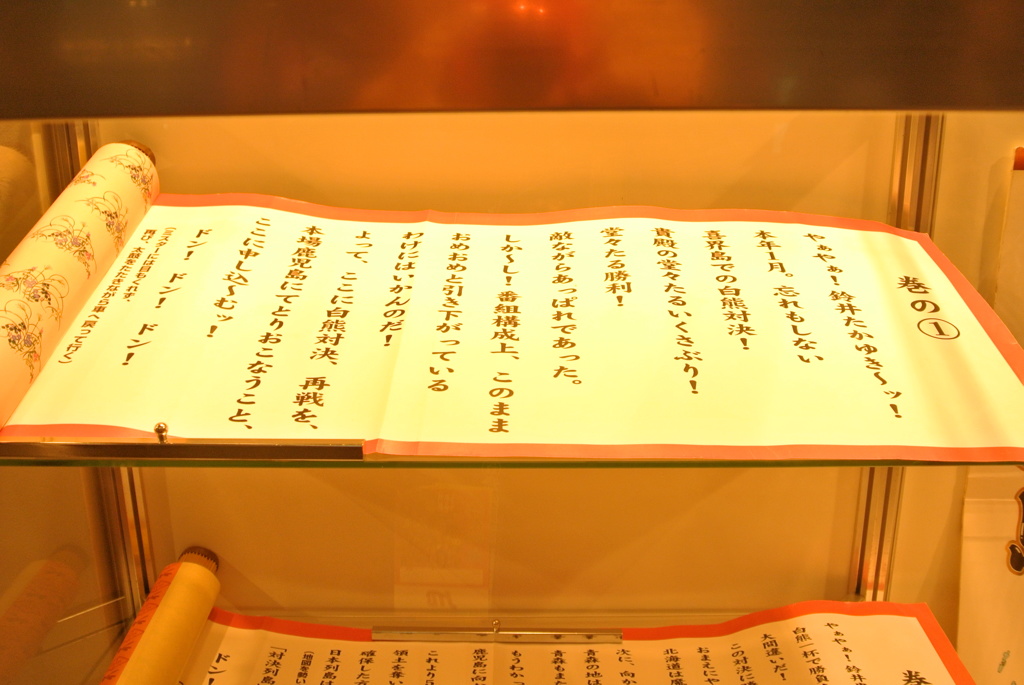 巻の①
やぁやぁ！鈴井たかゆき～ッ！
本年1月。忘れもしない
喜界島での白熊対決！
貴殿の堂々たるいくさぶり！
堂々たる勝利！
敵ながらあっぱれであった。
しか～し！番組構成上、このまま
おめおめと引き下がっている
わけにはいかんのだ！
よって、ここに白熊対決、再戦を、
本場鹿児島にてとりおこなうこと、
ここに申し込～むッ！
ドン！ ドン！ ドン！
巻
やぁやぁ！鈴井
白熊一杯で勝負
大間違いだ！
この対決に
おまえにや
北海道は
次に、向か
青森の地は
青森もまた
もうわかっ
鹿児島に向か
これより5
領土を奪い
確保した六
日本列島は
（地図を動い
「対決列島
ドン！